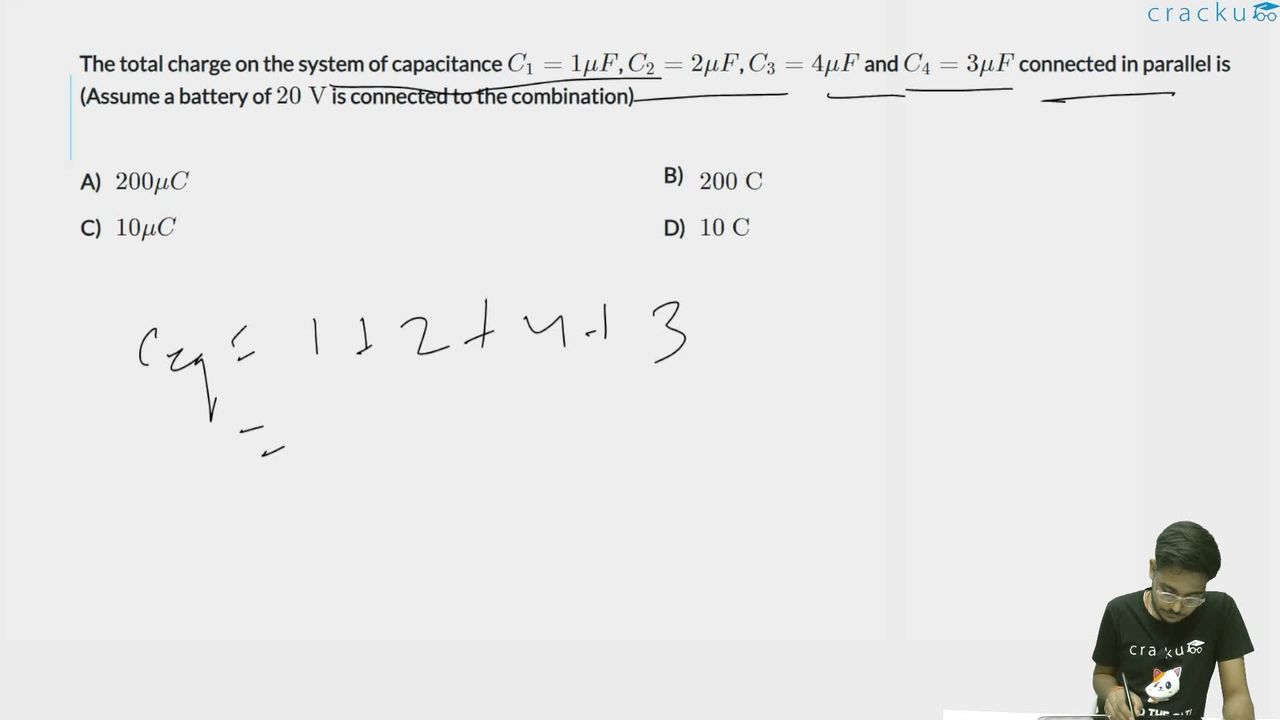 cracku
The total charge on the system of capacitance C₁ = 1μF, C₂ = 2μF, C₃ = 4μF and C₄ = 3μF connected in parallel is
(Assume a battery of 20 V is connected to the combination)
A) 200μC
B) 200 C
C) 10μC
D) 10 C
Ceq = 1 + 2 + 4 + 3
=
cracku